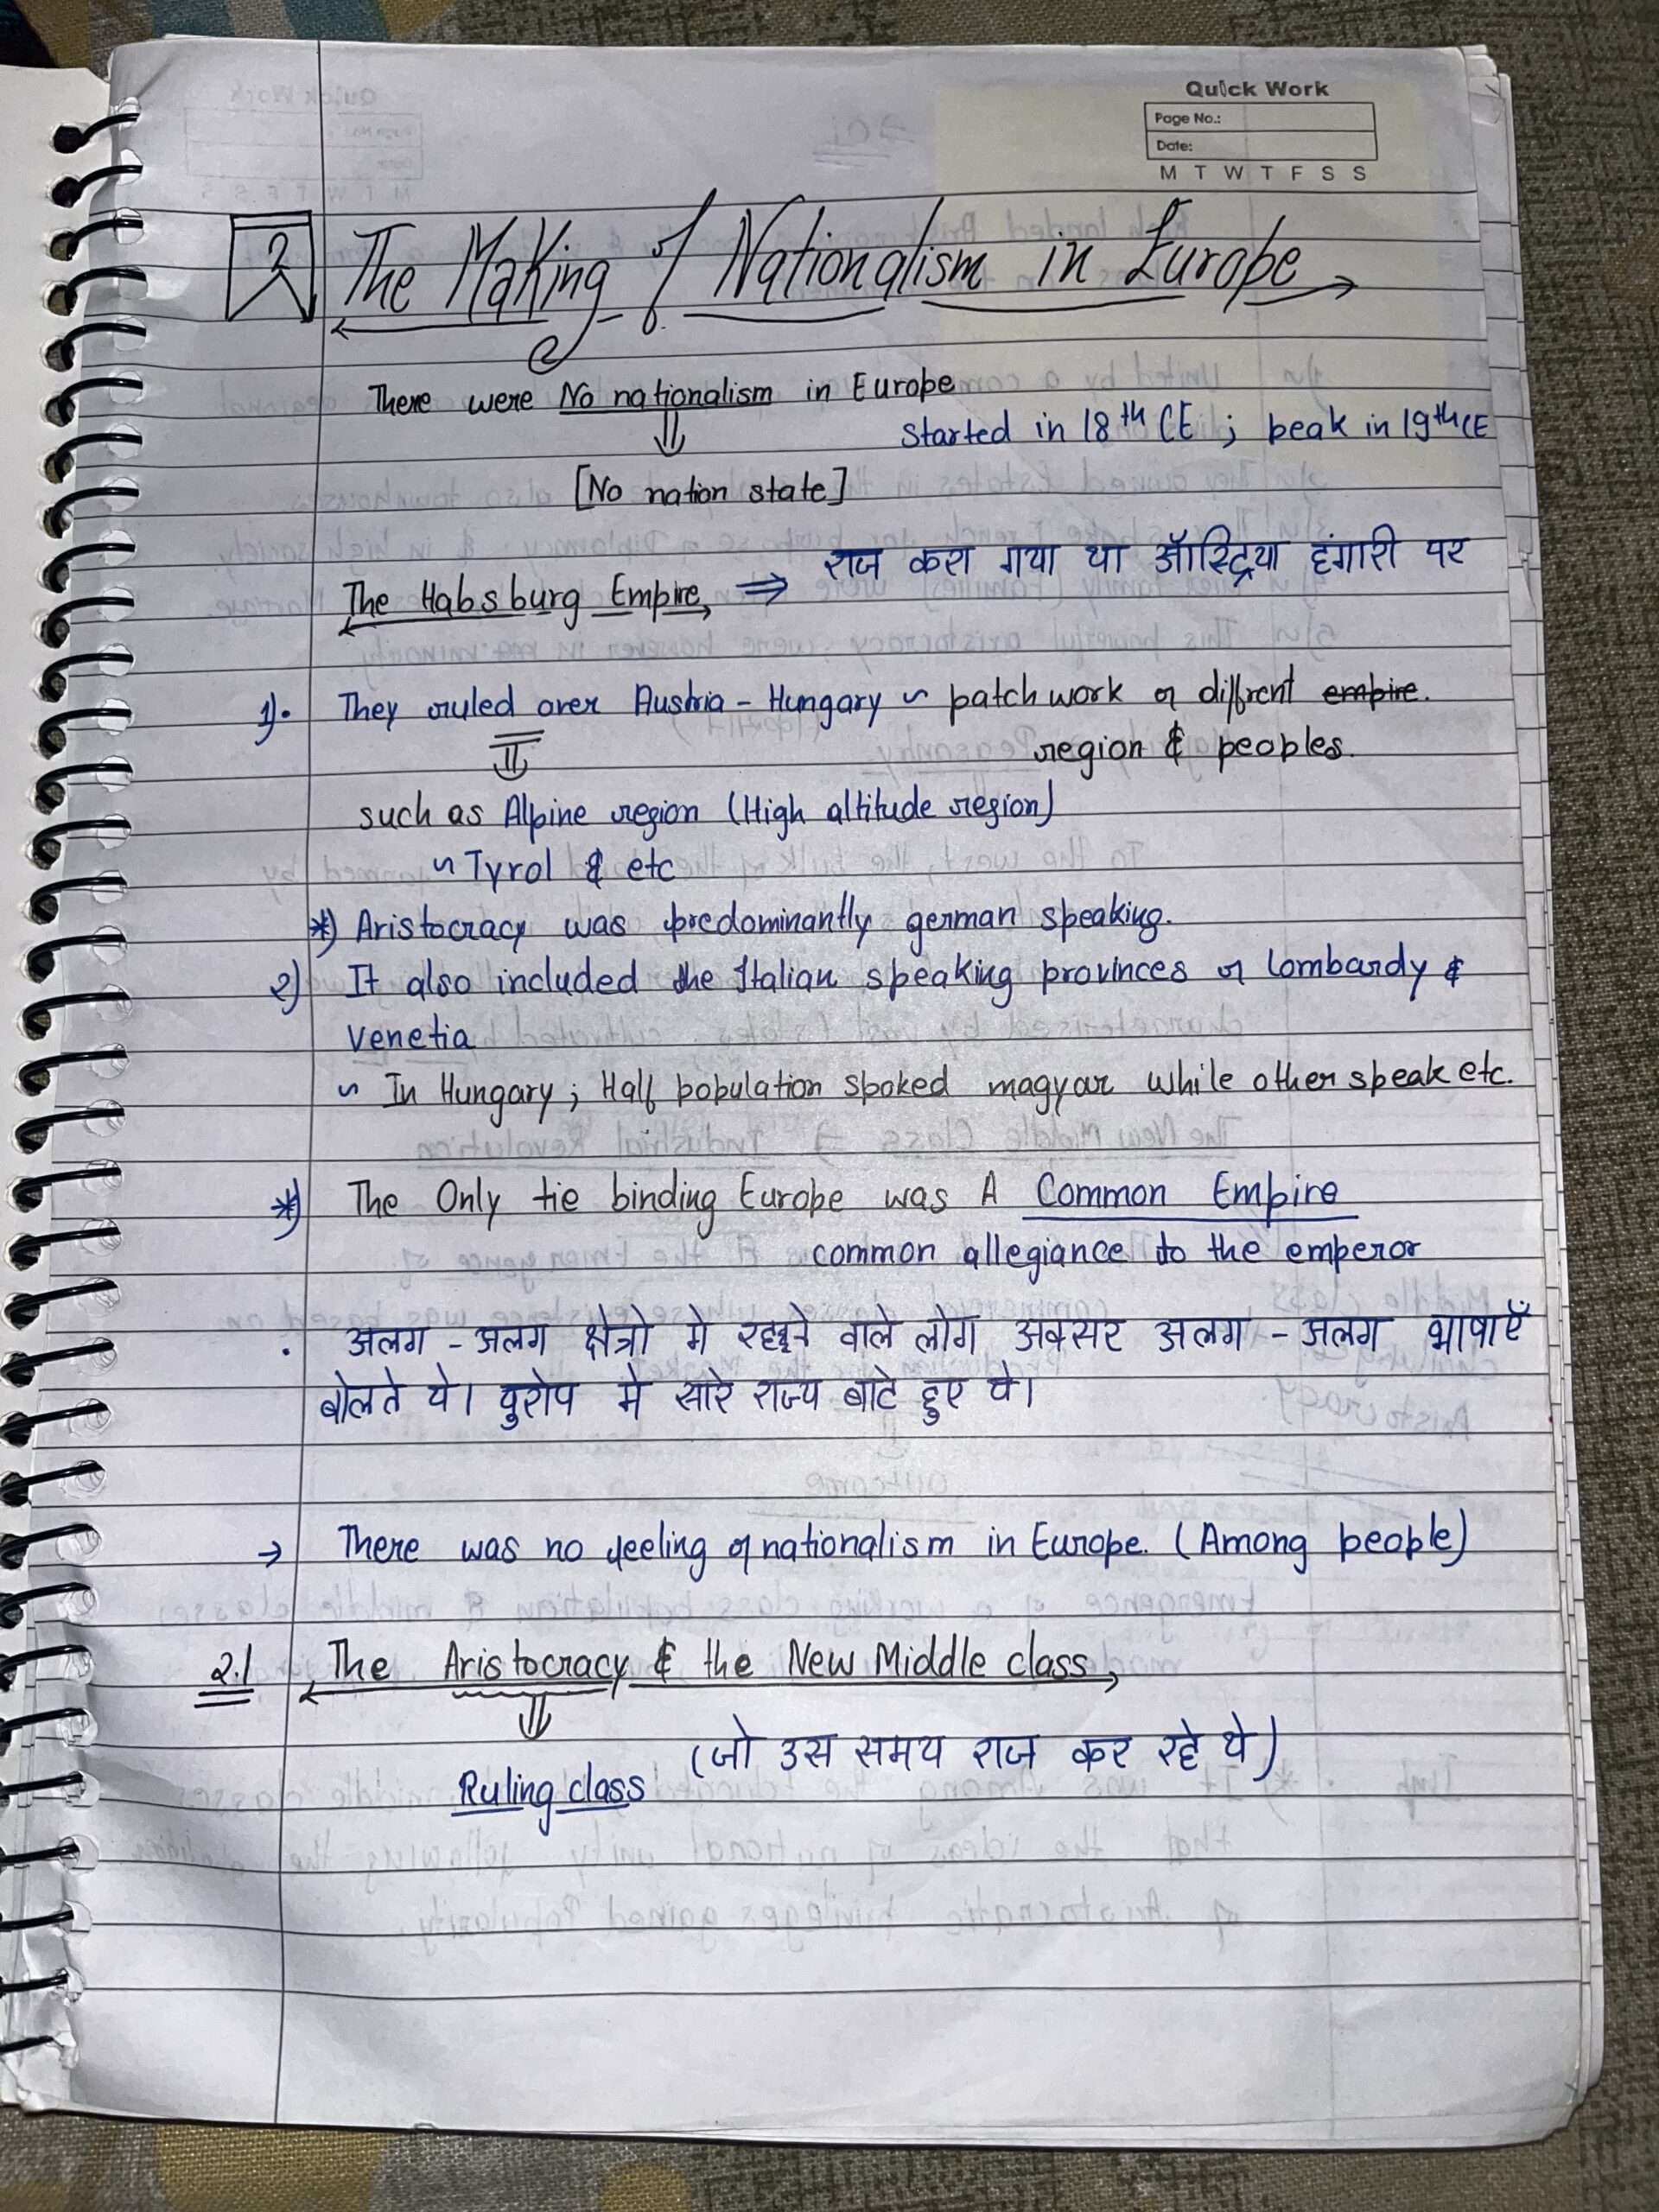 Quick Work
Page No.:
Date:
M T W T F S S
2 The Making of Nationalism in Europe
There were No nationalism in Europe
Started in 18th CE ; peak in 19th CE
[No nation state]
The Habsburg Empire ⇒ राज करा गया था ऑस्ट्रिया हंगारी पर
1). They ruled over Austria - Hungary ~ patch work of diffrent empire.
region & peoples.
such as Alpine region (High altitude region)
~ Tyrol & etc
*) Aristocracy was predominantly german speaking.
2) It also included the Italian speaking provinces of Lombardy &
Venetia
~ In Hungary ; Half population spoked magyar while other speak etc.
*) The Only tie binding Europe was A Common Empire
common allegiance to the emperor
. अलग - अलग क्षेत्रो मे रहने वाले लोग अक्सर अलग - अलग भाषाएँ
बोलते थे। युरोप मे सारे राज्य बाटे हुए थे।
→ There was no feeling of nationalism in Europe. (Among people)
2.1 The Aristocracy & the New Middle class
(जो उस समय राज कर रहे थे)
Ruling class